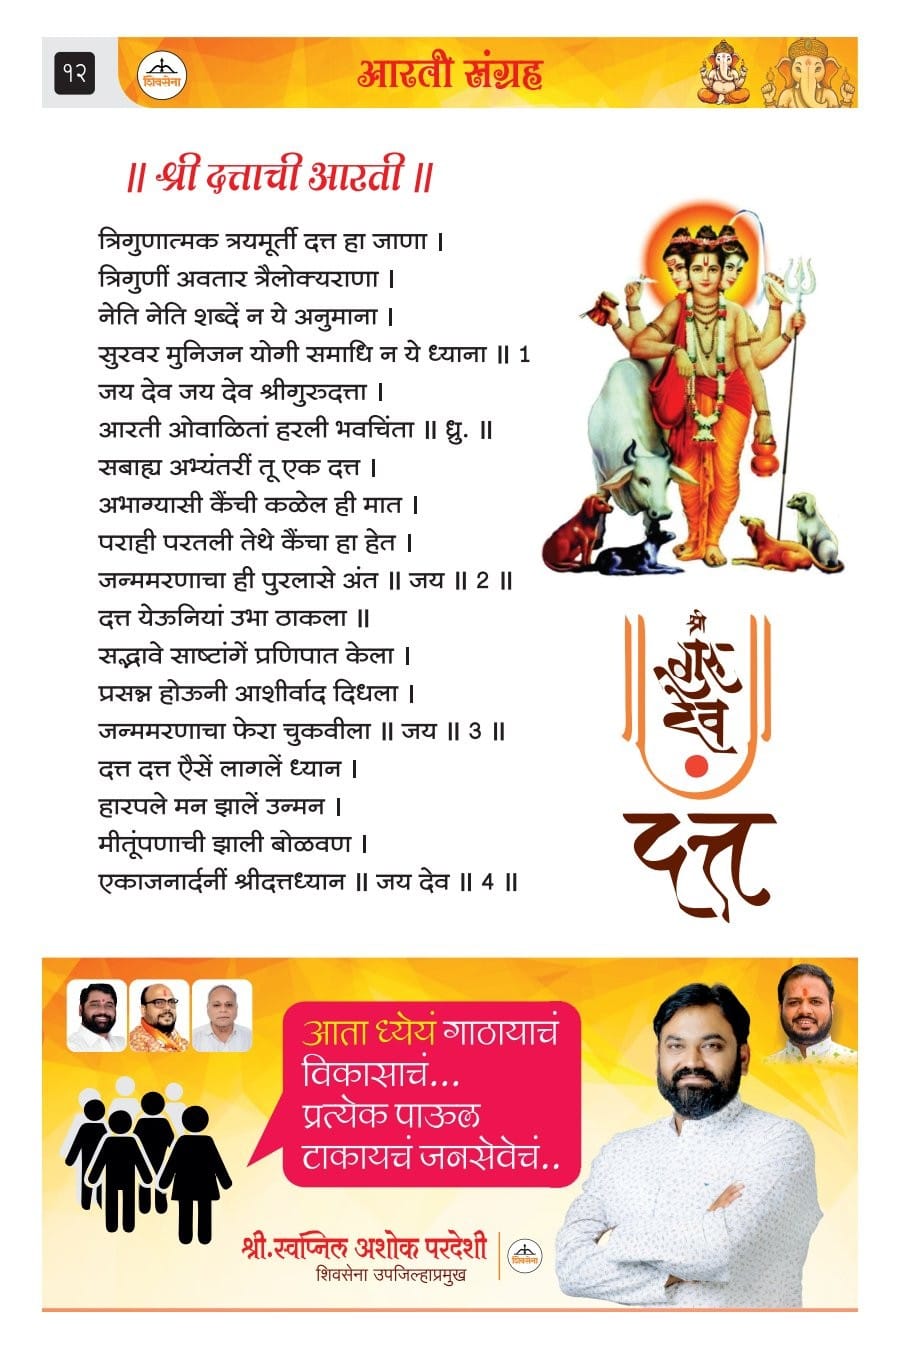 १२
शिवसेना
आरती संग्रह
॥ श्री दत्ताची आरती ॥
त्रिगुणात्मक त्रयमूर्ती दत्त हा जाणा ।
त्रिगुणीं अवतार त्रैलोक्यराणा ।
नेति नेति शब्दें न ये अनुमाना ।
सुरवर मुनिजन योगी समाधि न ये ध्याना ॥ 1
जय देव जय देव श्रीगुरुदत्ता ।
आरती ओवाळितां हरली भवचिंता ॥ ध्रु. ॥
सबाह्य अभ्यंतरीं तू एक दत्त ।
अभाग्यासी कैंची कळेल ही मात ।
पराही परतली तेथे कैंचा हा हेत ।
जन्ममरणाचा ही पुरलासे अंत ॥ जय ॥ 2 ॥
दत्त येऊनियां उभा ठाकला ॥
सद्भावे साष्टांगें प्रणिपात केला ।
प्रसन्न होऊनी आशीर्वाद दिधला ।
जन्ममरणाचा फेरा चुकवीला ॥ जय ॥ 3 ॥
दत्त दत्त एैसें लागलें ध्यान ।
हारपले मन झालें उन्मन ।
मीतूंपणाची झाली बोळवण ।
एकाजनार्दनीं श्रीदत्तध्यान ॥ जय देव ॥ 4 ॥
श्री
गुरु
देव
दत्त
आता ध्येयं गाठायाचं
विकासाचं...
प्रत्येक पाऊल
टाकायचं जनसेवेचं..
श्री.स्वप्निल अशोक परदेशी
शिवसेना उपजिल्हाप्रमुख
शिवसेना